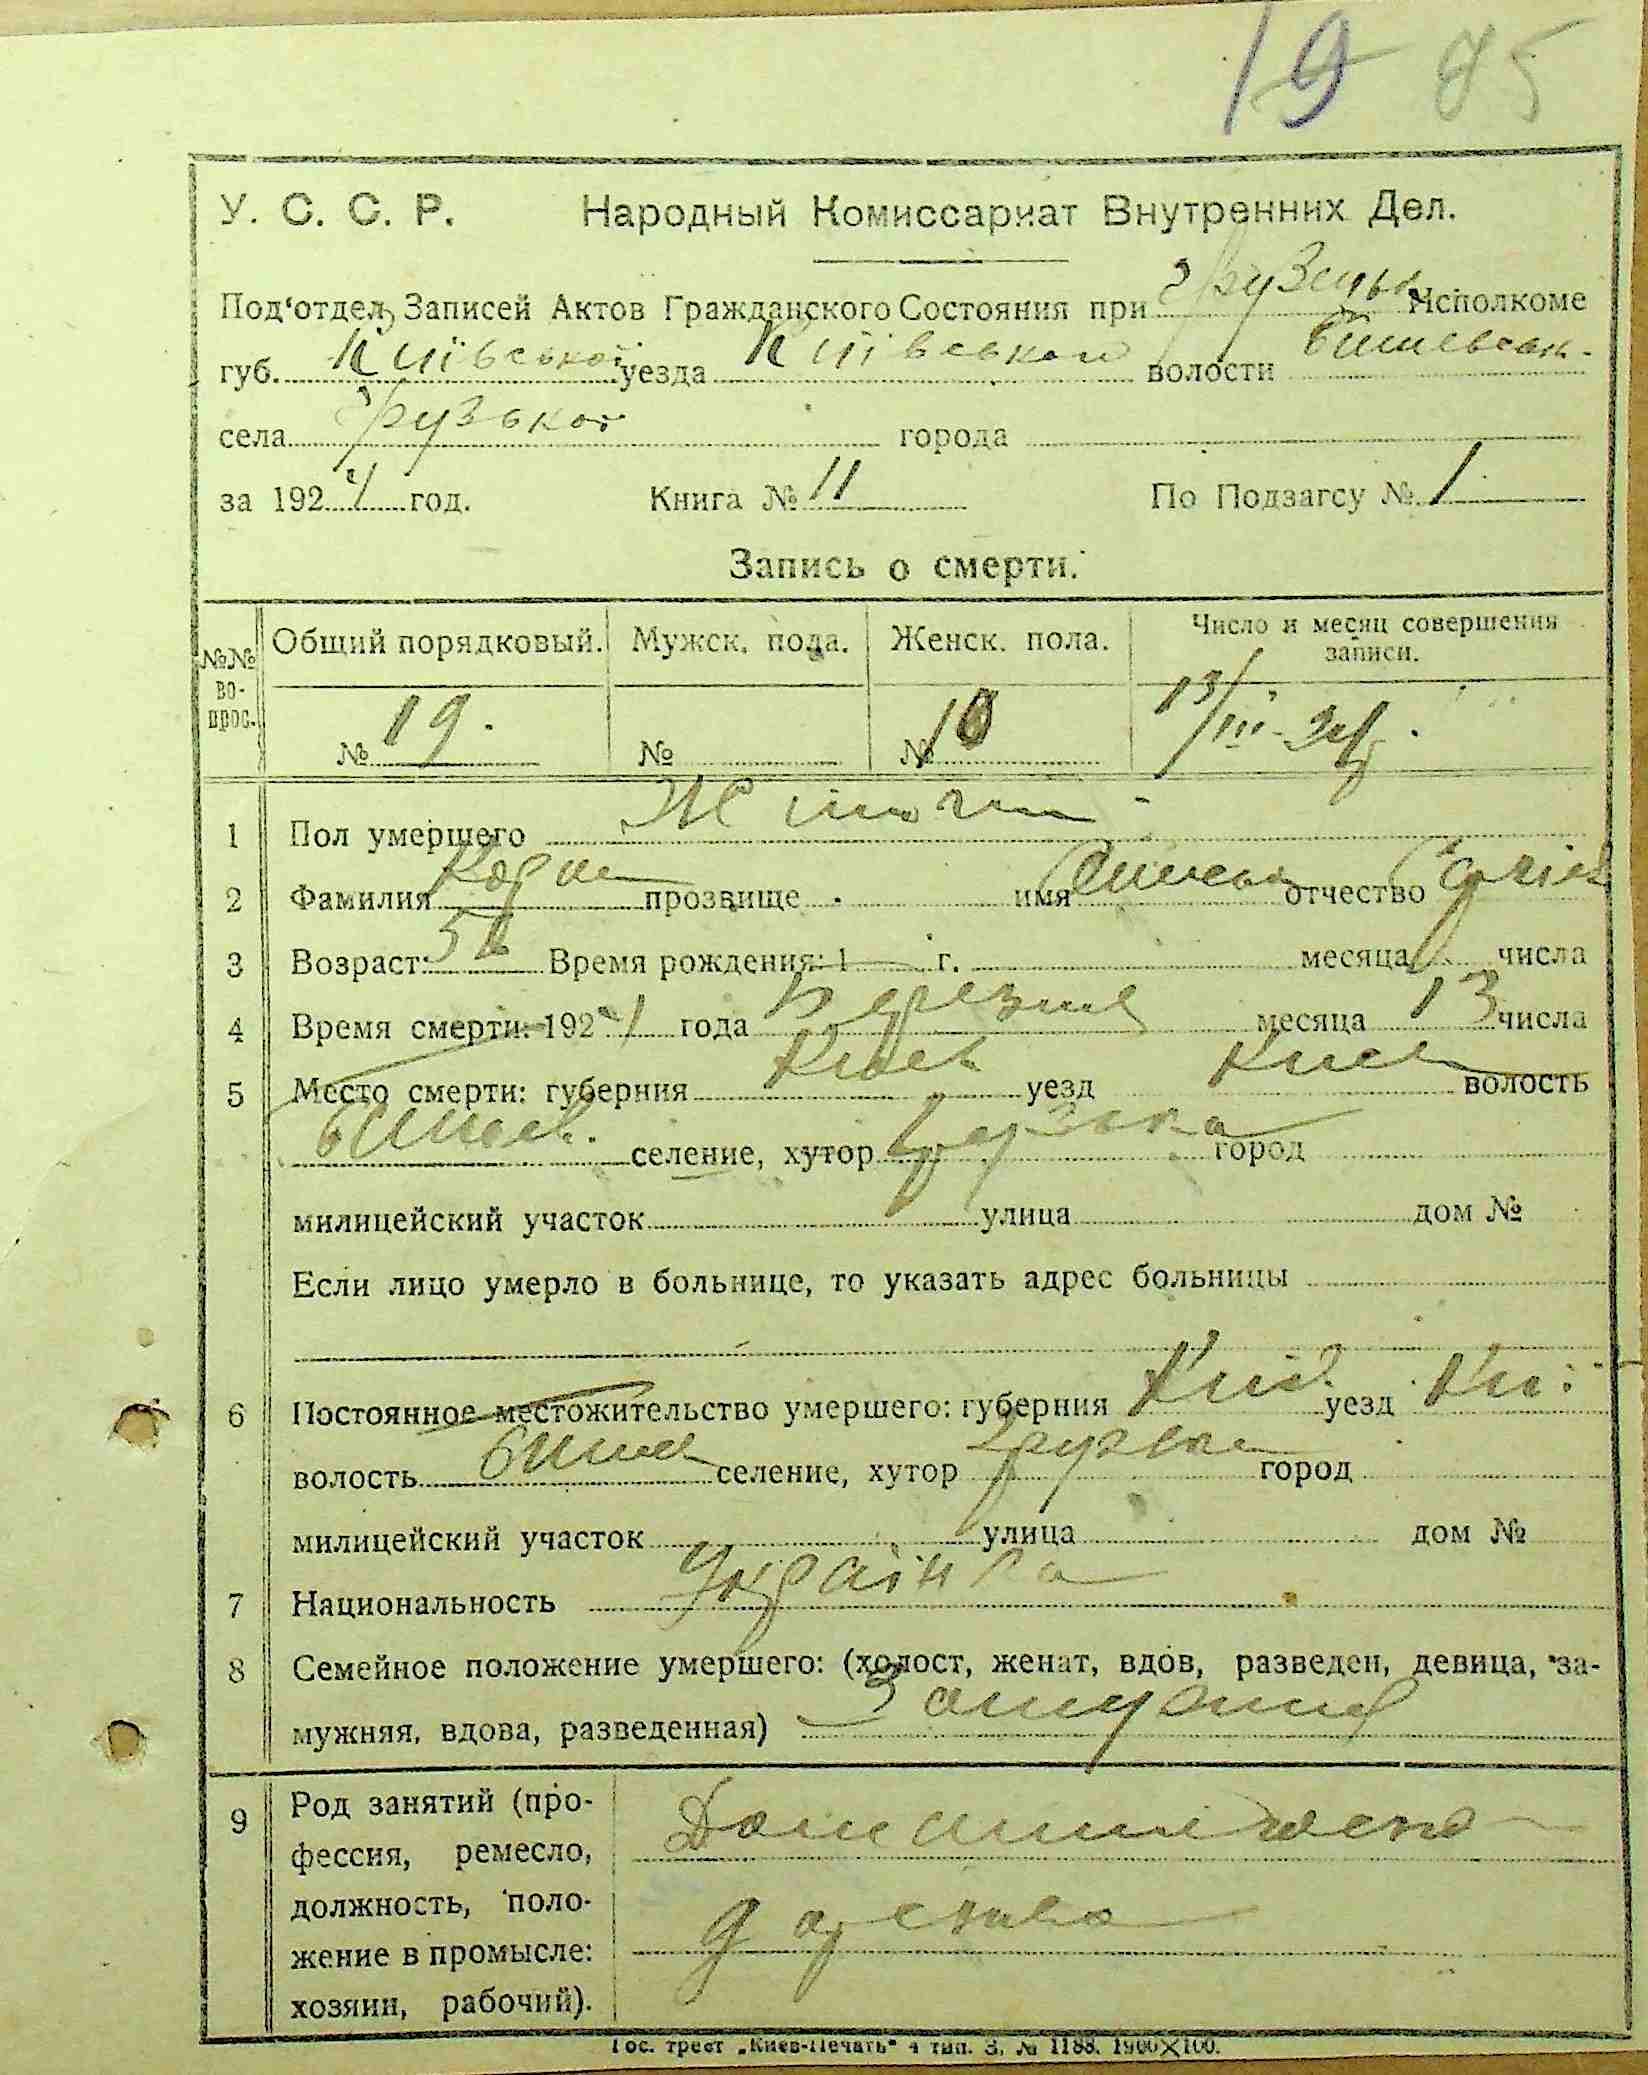 19 85
У. С. С. Р. Народный Комиссариат Внутренних Дел.
Под‘отдел Записей Актов Гражданского Состояния при Исполкоме
губ. Київської уезда Київської волости Бишевськ.
села Грузької города
за 1924 год. Книга № 11 По Подзагсу № 1
Запись о смерти.
№№ во- прос. Общий порядковый. Мужск. пола. Женск. пола. Число и месяц совершения записи.
№ 19. № № 10 13/III-24 р.
1 Пол умершего Жіночи
2 Фамилия прозвище имя отчество
3 Возраст: Время рождения: 1 г. месяца числа
4 Время смерти: 1924 года Березня месяца 13 числа
5 Место смерти: губерния Київ уезд Київ волость
Бишев. селение, хутор Грузька город
милицейский участок улица дом №
Если лицо умерло в больнице, то указать адрес больницы
6 Постоянное местожительство умершего: губерния Київ. уезд Киї
волость Бишев селение, хутор Грузька город
милицейский участок улица дом №
7 Национальность Українка
8 Семейное положение умершего: (холост, женат, вдов, разведен, девица, за-
мужняя, вдова, разведенная) Замужня
9 Род занятий (про-
фессия, ремесло,
должность, поло-
жение в промысле:
хозяин, рабочий).
Гос. трест „Киев-Печать“ 4 тип. З. № 1188. 1900×100.